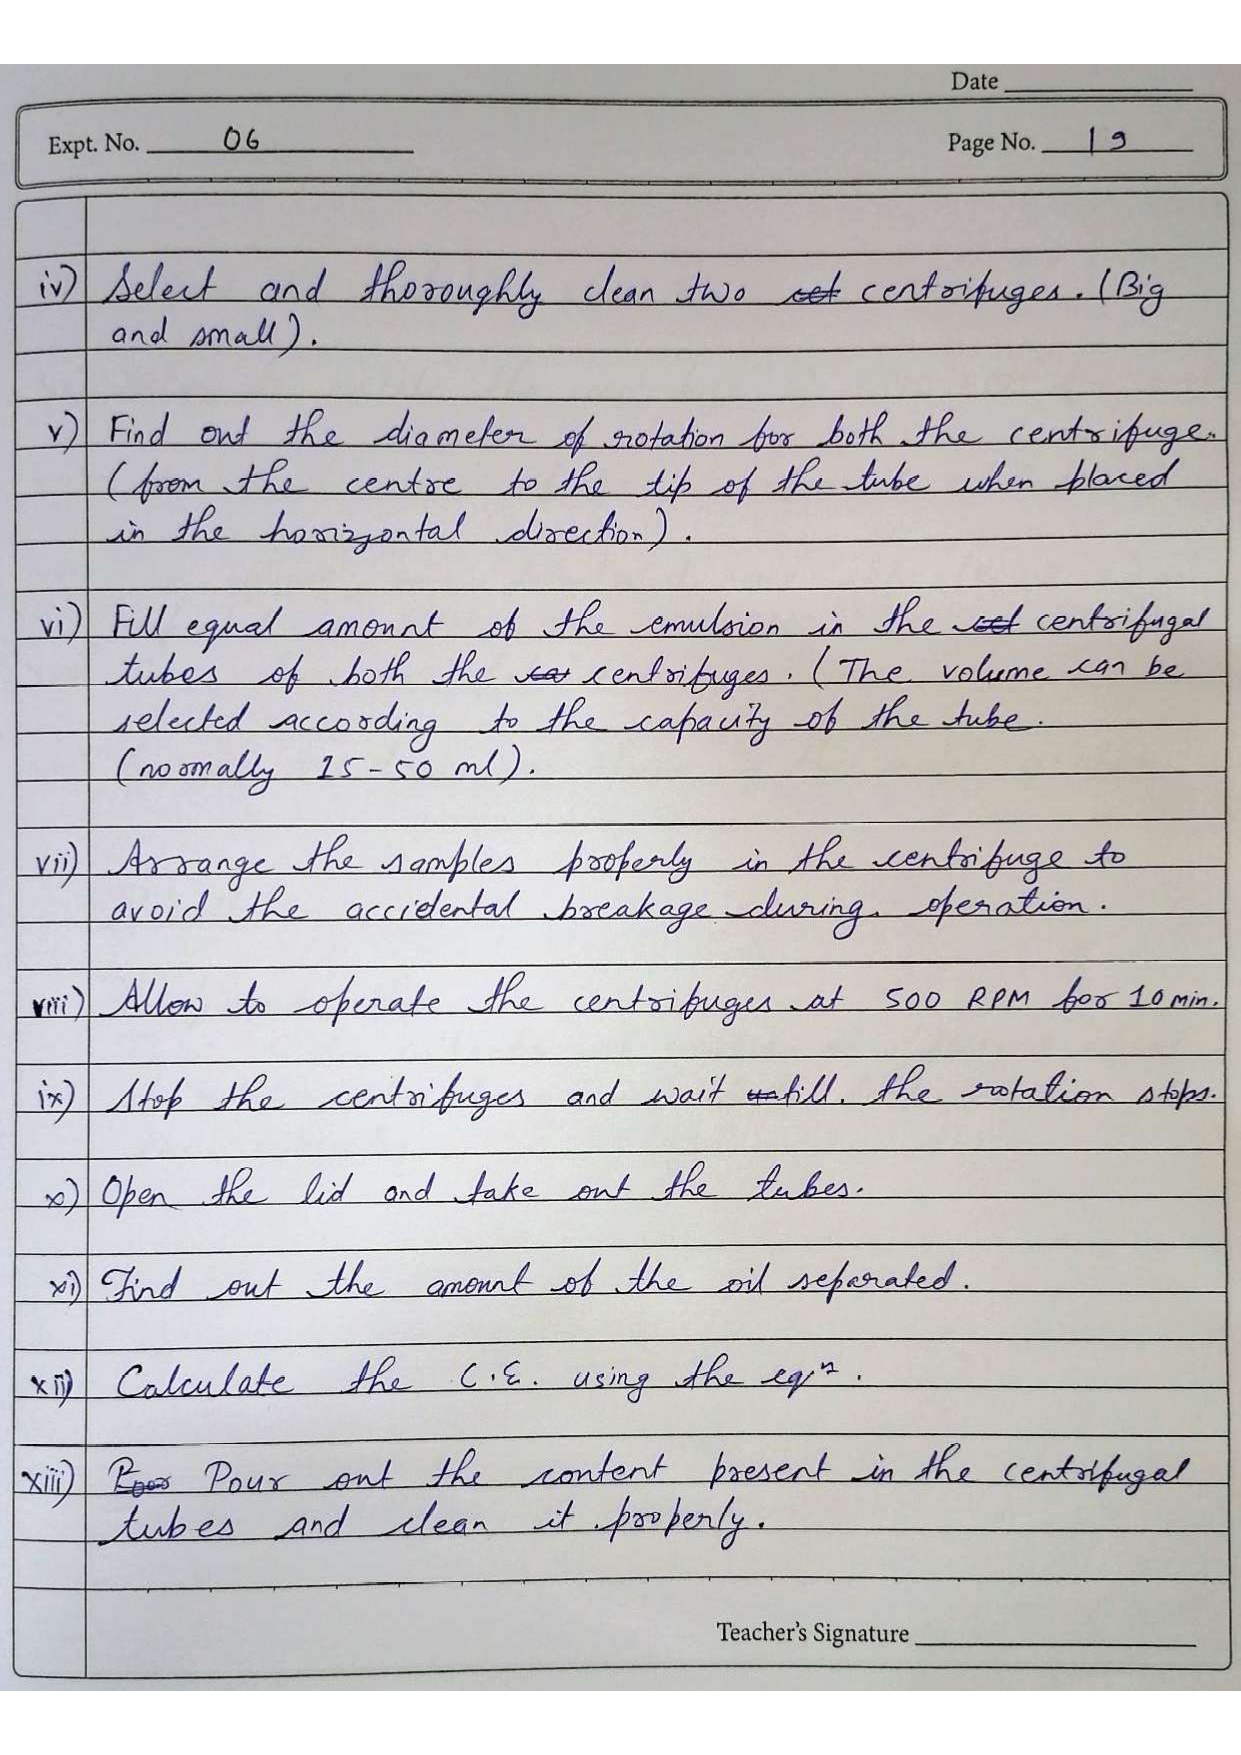 Date
Expt. No. 06
Page No. 19
iv) Select and thoroughly clean two set centrifuges. (Big
and small).
v) Find out the diameter of rotation for both the centrifuge.
(from the centre to the tip of the tube when placed
in the horizontal direction).
vi) Fill equal amount of the emulsion in the set centrifugal
tubes of both the centrifuges. (The volume can be
selected according to the capacity of the tube.
(normally 15-50 ml).
vii) Arrange the samples properly in the centrifuge to
avoid the accidental breakage during operation.
viii) Allow to operate the centrifuges at 500 RPM for 10 min.
ix) Stop the centrifuges and wait till the rotation stops.
x) Open the lid and take out the tubes.
xi) Find out the amount of the oil separated.
xii) Calculate the C.E. using the eqⁿ.
xiii) Pour out the content present in the centrifugal
tubes and clean it properly.
Teacher's Signature